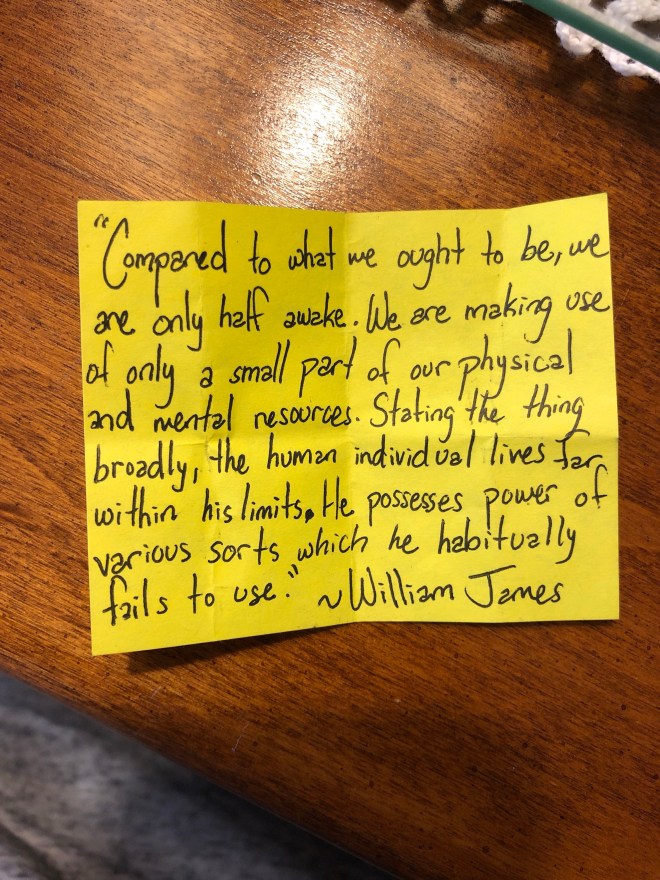 "Compared to what we ought to be, we
are only half awake. We are making use
of only a small part of our physical
and mental resources. Stating the thing
broadly, the human individual lives far
within his limits. He possesses power of
various sorts which he habitually
fails to use." ~William James